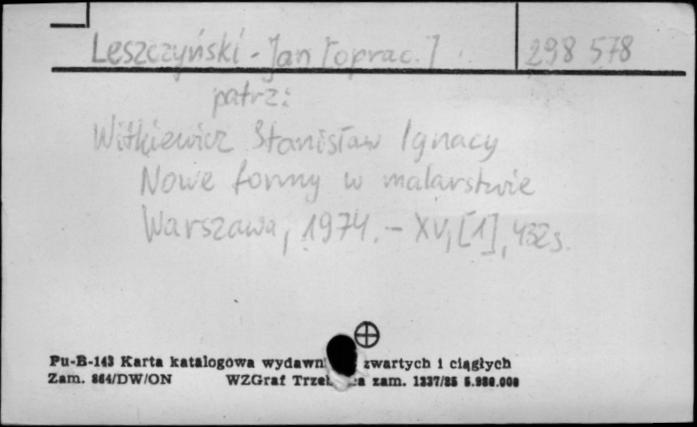 Leszczyński - Jan [oprac.] 298 578
patrz:
Witkiewicz Stanisław Ignacy
Nowe formy w malarstwie
Warszawa, 1974. - XV, [1], 432 s.
Pu-B-143 Karta katalogowa wydawn zwartych i ciągłych
Zam. 864/DW/ON WZGraf zam. 1337/85 5.980.000